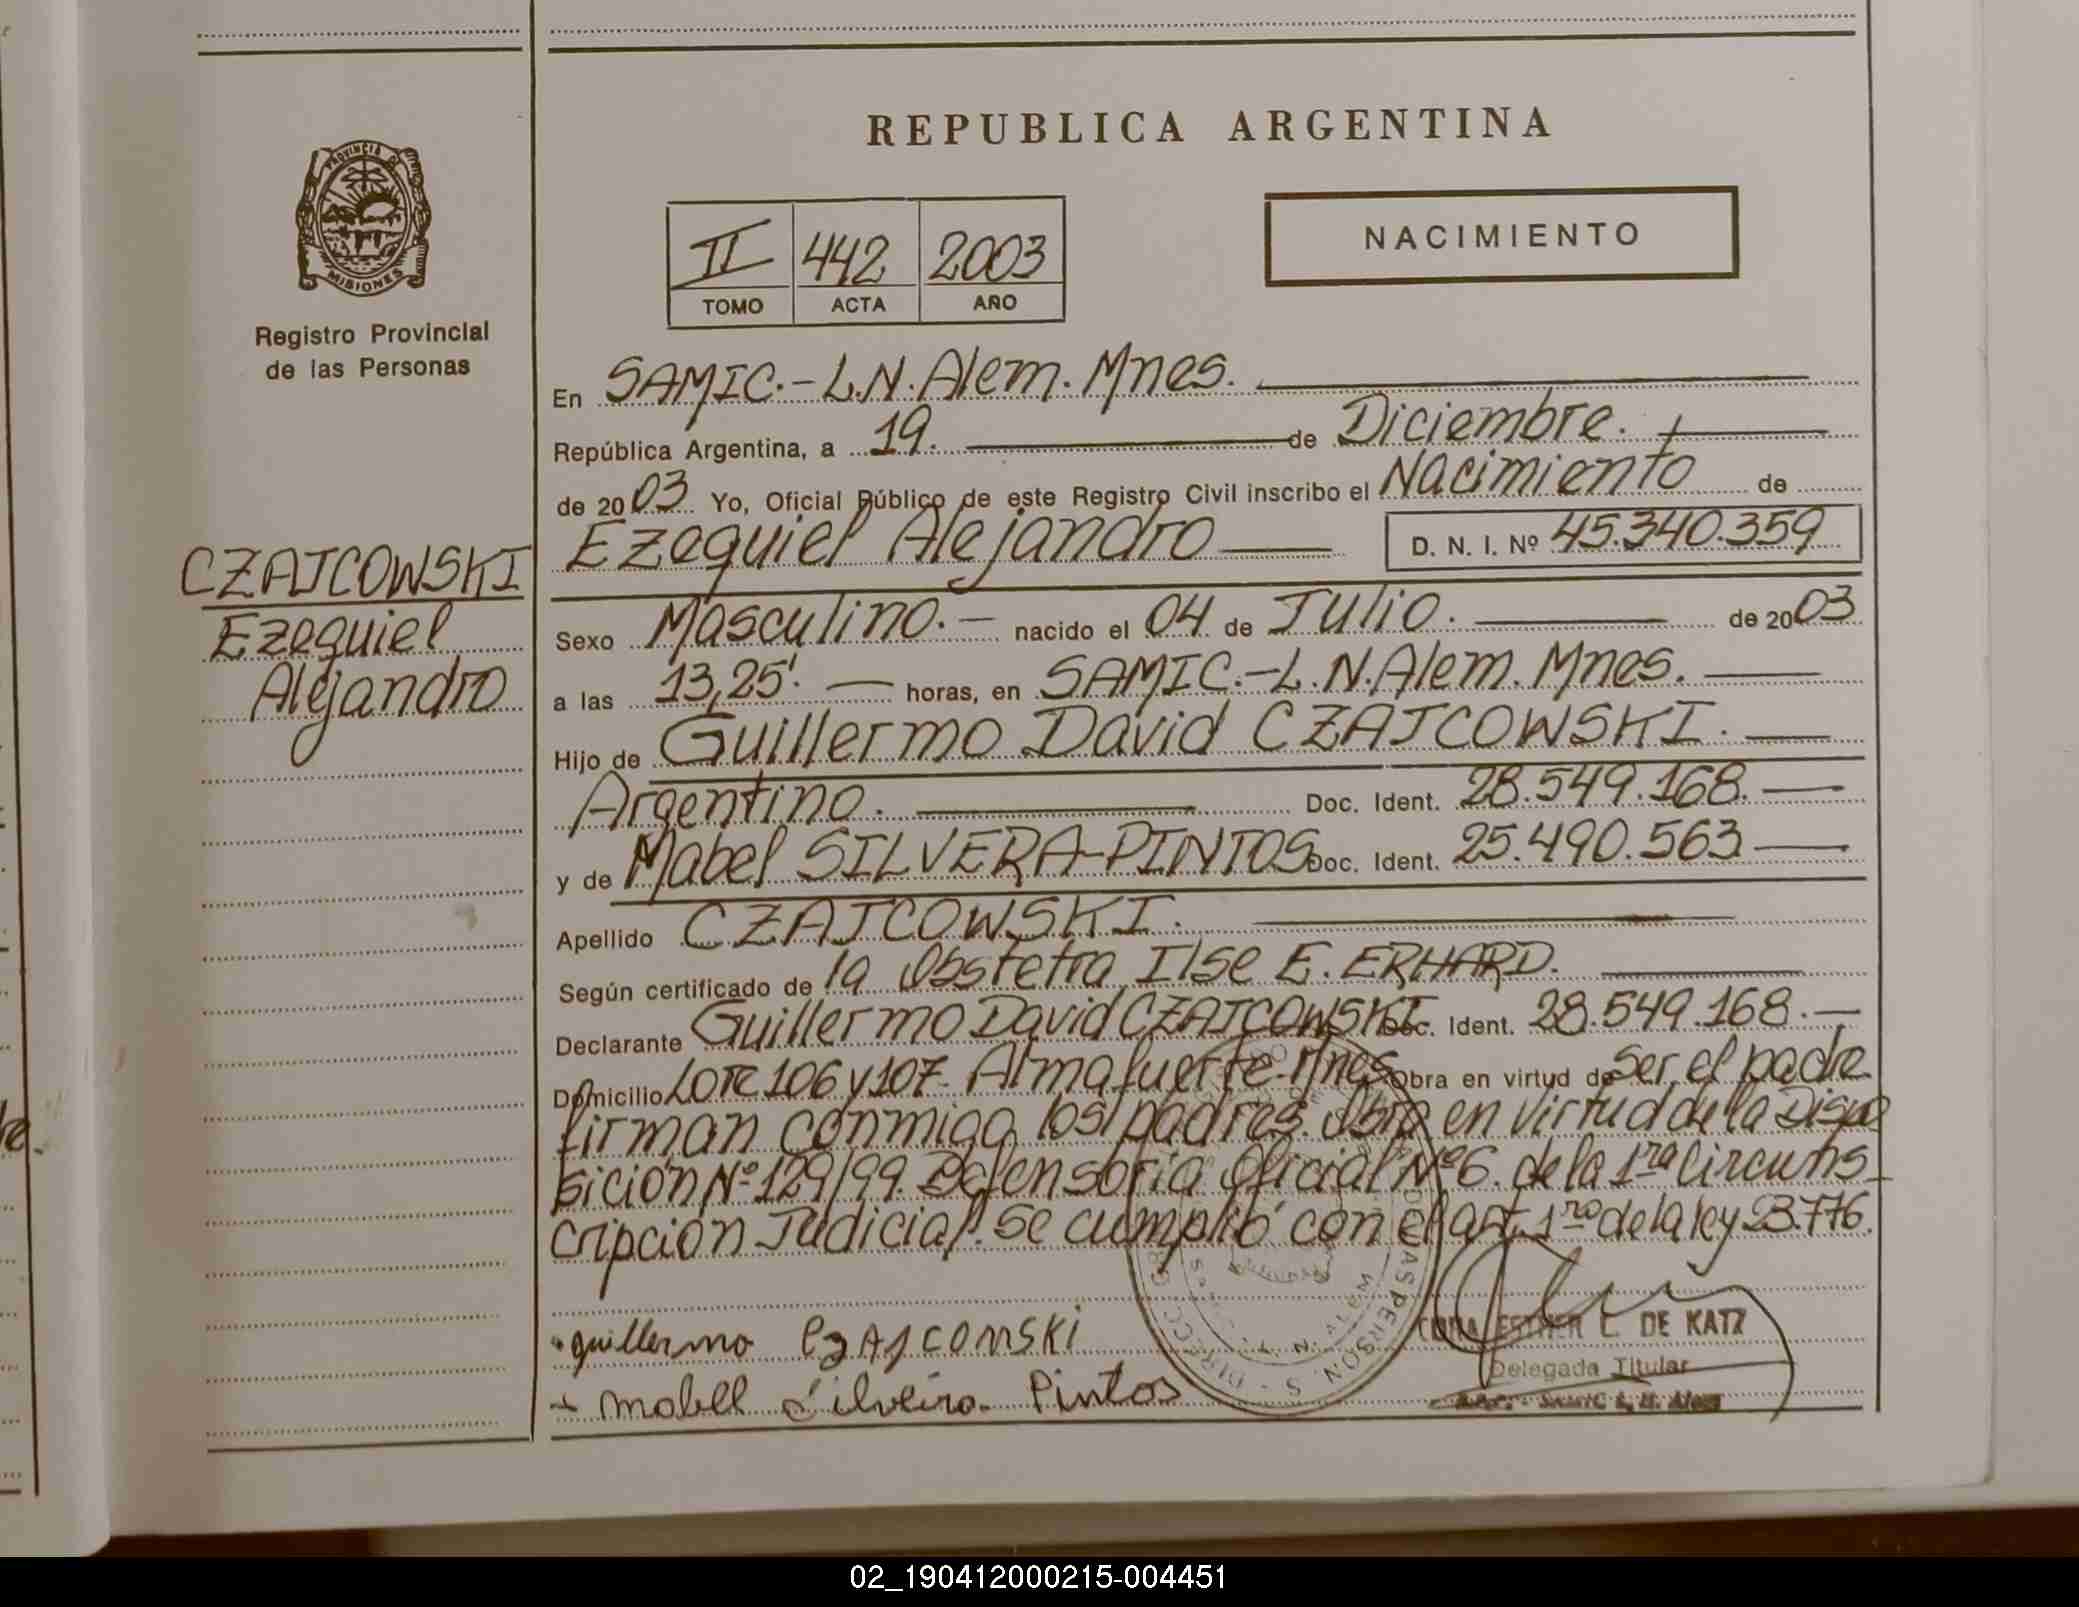 REPUBLICA ARGENTINA
PROVINCIA DE
MISIONES
Registro Provincial
de las Personas
II 442 2003
TOMO ACTA AÑO
NACIMIENTO
En SAMIC.-L.N.Alem.Mnes.
República Argentina, a 19. de Diciembre.
de 2003 Yo, Oficial Público de este Registro Civil inscribo el Nacimiento de
Ezequiel Alejandro D. N. I. Nº 45.340.359
CZAJCOWSKI
Ezequiel
Alejandro
Sexo Masculino.- nacido el 04 de Julio. de 2003
a las 13,25'. horas, en SAMIC.-L.N.Alem.Mnes.
Hijo de Guillermo David CZAJCOWSKI.
Argentino. Doc. Ident. 28.549.168.
y de Mabel SILVERA-PINTOS Doc. Ident. 25.490.563
Apellido CZAJCOWSKI.
Según certificado de la Obstetra Ilse E. ERHARD.
Declarante Guillermo David CZAJCOWSKI Doc. Ident. 28.549.168.
Domicilio Lote 106 y 107. Almafuerte-Mnes Obra en virtud de Ser el padre
firman conmigo los padres. Obra en virtud de la Dispo
sición Nº 129/99. Defensoria Oficial Nº 6. de la 1ra Circuns_
cripción Judicial. Se cumplió con el art. 1ro de la ley 23.776.
guillermo CzAJCOWSKi
Mabell Silveira Pintos
ESTHER L. DE KATZ
Delegada Titular
02_190412000215-004451